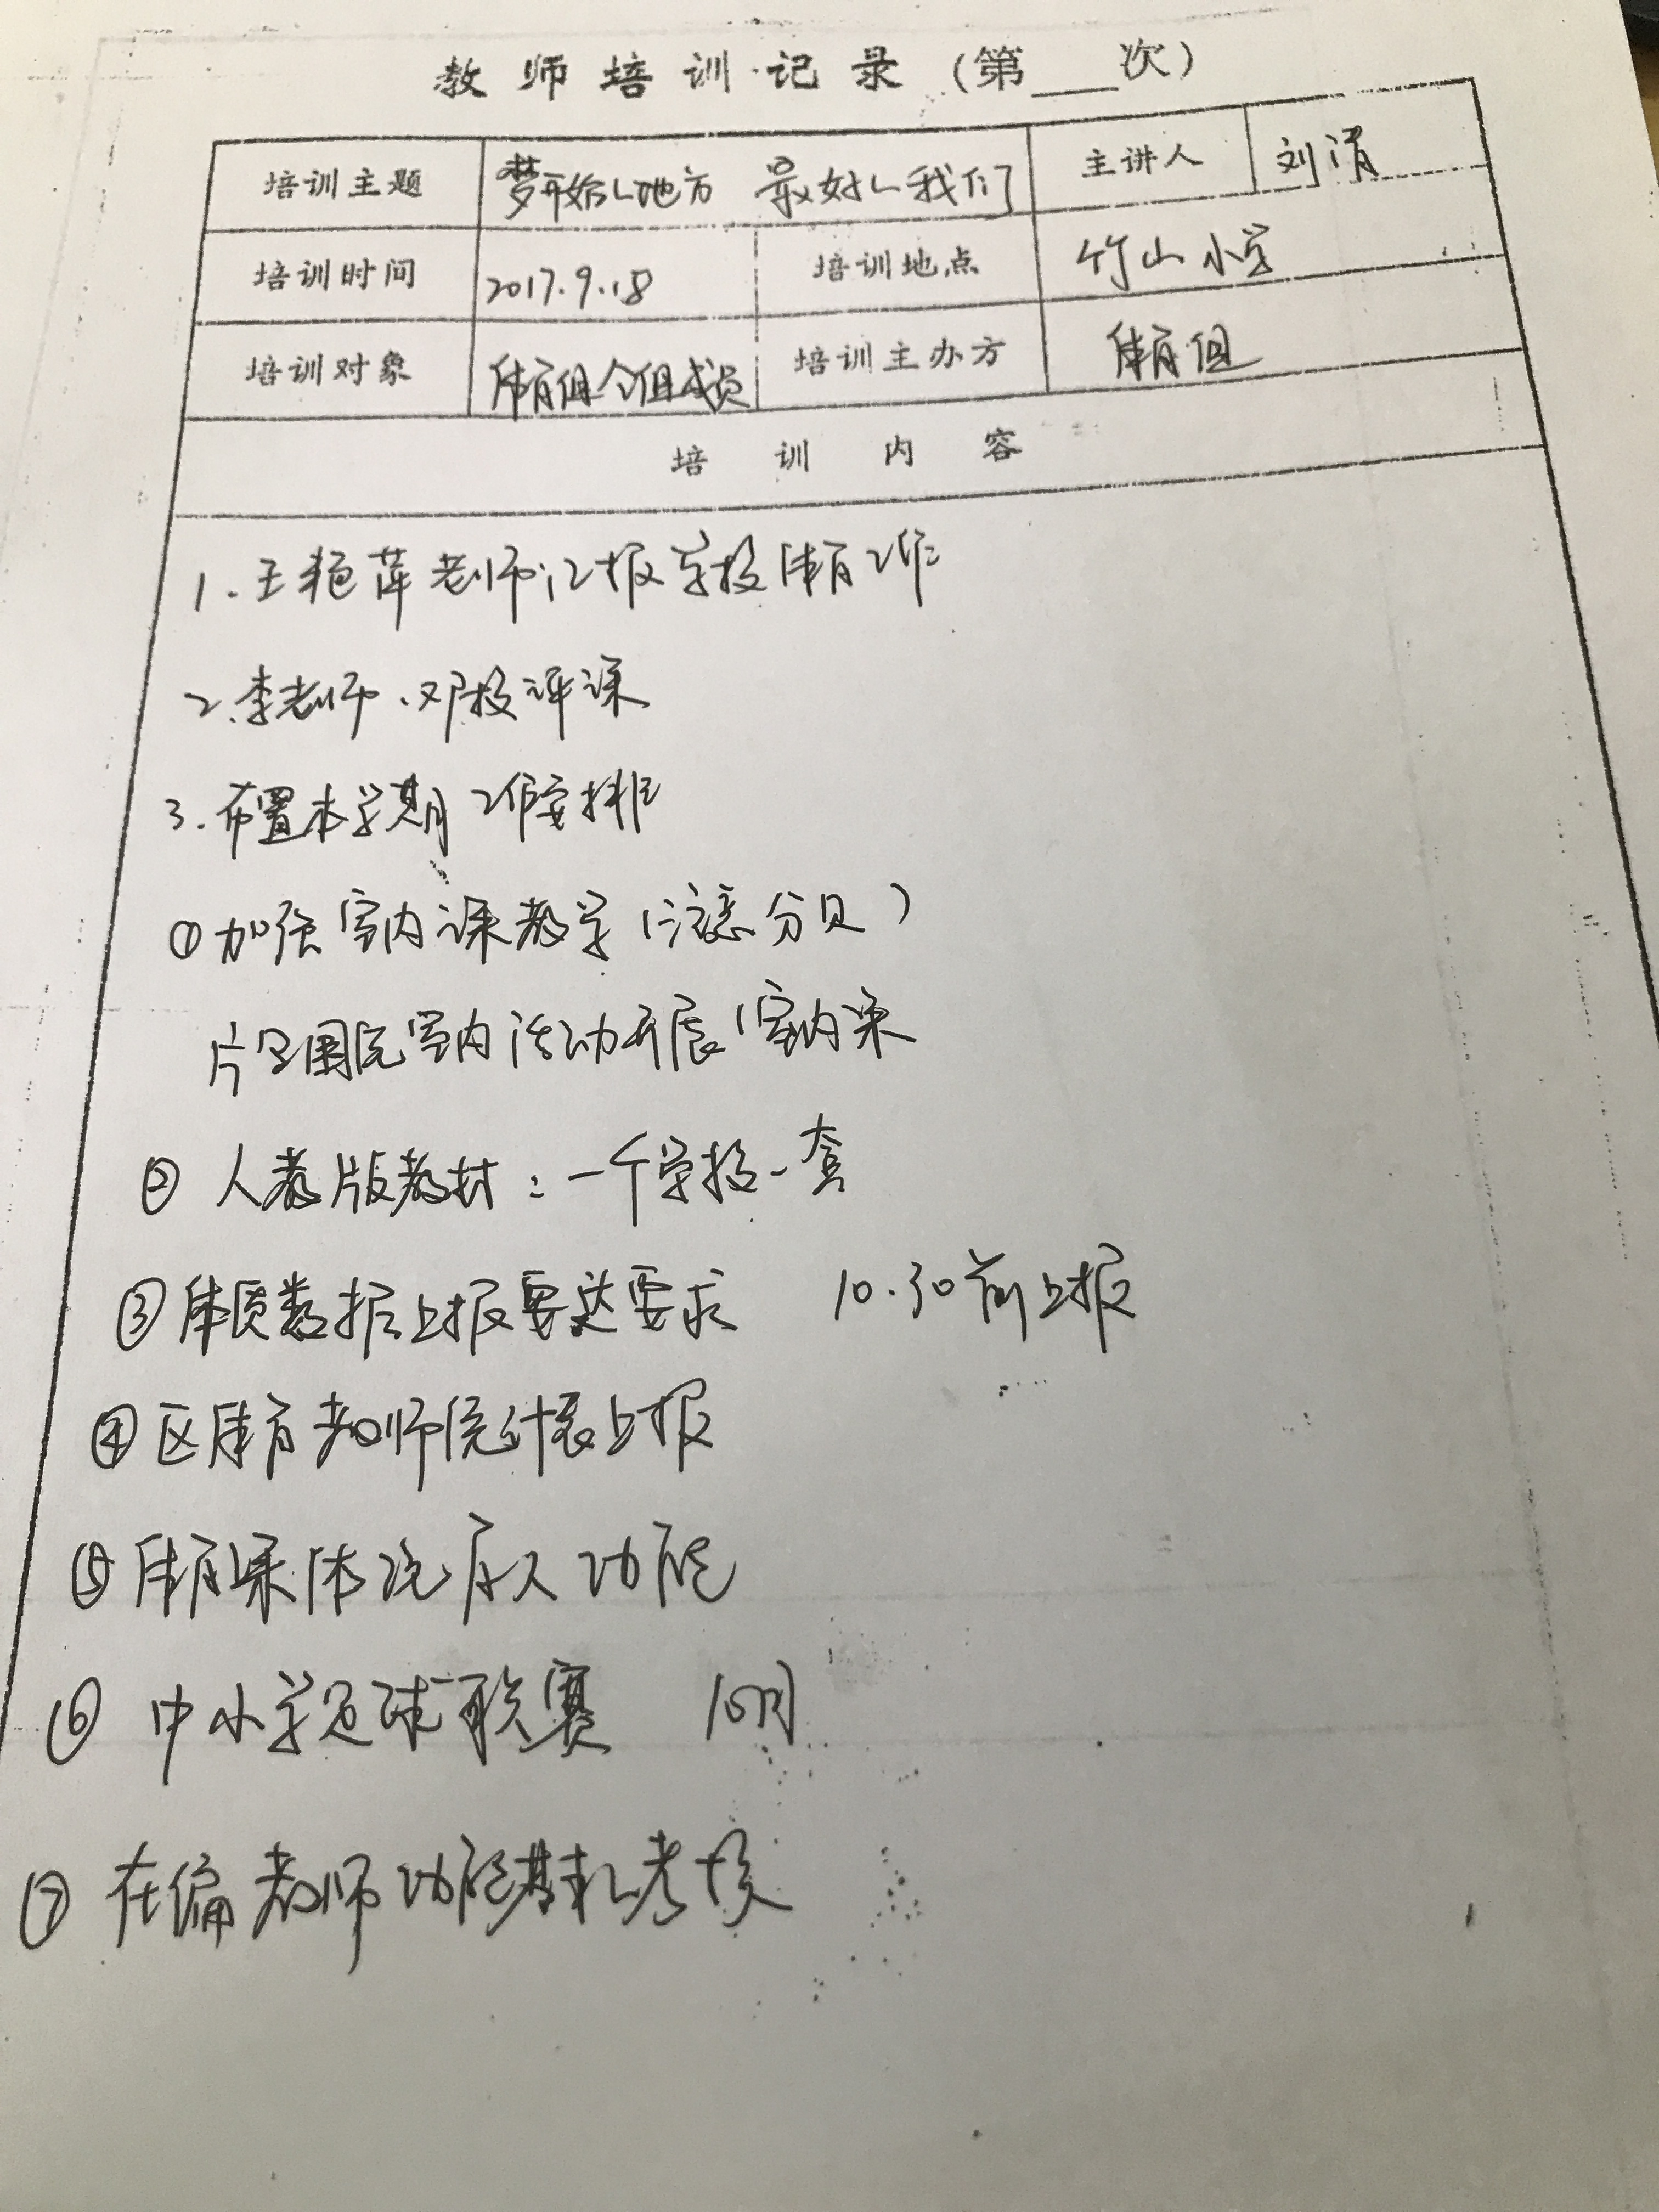 教师培训记录（第___次）
培训主题 梦开始的地方 最好的我们 主讲人 刘
培训时间 2017.9.18 培训地点 竹山小学
培训对象 体育组全组成员 培训主办方 体育组
培训内容
1.王艳萍老师汇报学校体育工作
2.李老师、邓校评课
3.布置本学期工作安排
①加强室内课教学（注意分贝）
片区围绕室内活动开展室内课
② 人教版教材：一个学校一套
③体质数据上报要达要求 10.30前上报
④区体育老师统计表上报
⑤体育课体现育人功能
⑥ 中小学足球联赛 10月
⑦ 在编教师功能考核